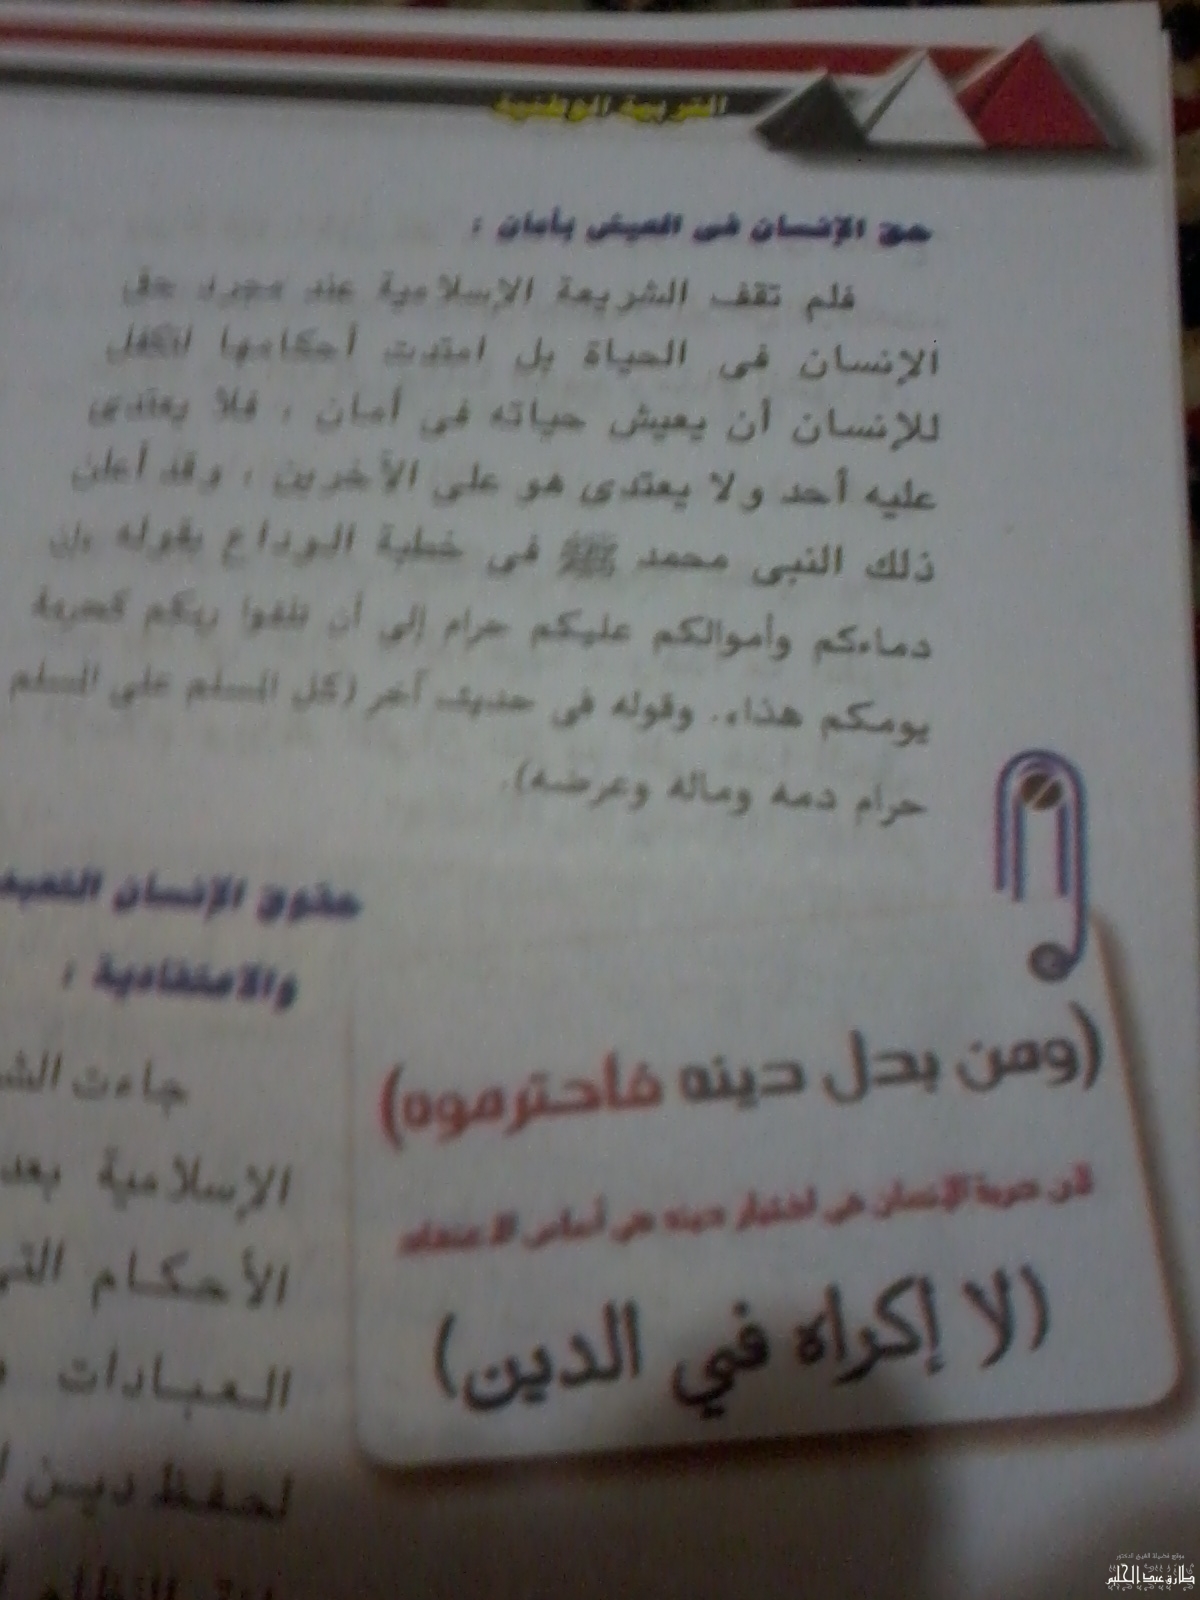 التربية الوطنية
حق الإنسان فى العيش بأمان :
فلم تقف الشريعة الإسلامية عند مجرد حق
الإنسان فى الحياة بل امتدت أحكامها لتكفل
للإنسان أن يعيش حياته فى أمان ، فلا يعتدى
عليه أحد ولا يعتدى هو على الآخرين ، وقد أعلن
ذلك النبى محمد ﷺ فى خطبة الوداع بقوله «إن
دماءكم وأموالكم عليكم حرام إلى أن تلقوا ربكم كحرمة
يومكم هذا». وقوله فى حديث آخر (كل المسلم على المسلم
حرام دمه وماله وعرضه).
حقوق الإنسان
والاعتقادية :
جاءت
الإسلامية بعد
الأحكام التى
العبادات
لحفظ دين
(ومن بدل دينه فأحترموه)
لأن حرية الإنسان فى اختيار دينه هى أساس الاعتقاد
(لا إكراه في الدين)
موقع فضيلة الشيخ الدكتور
طارق عبد الحليم